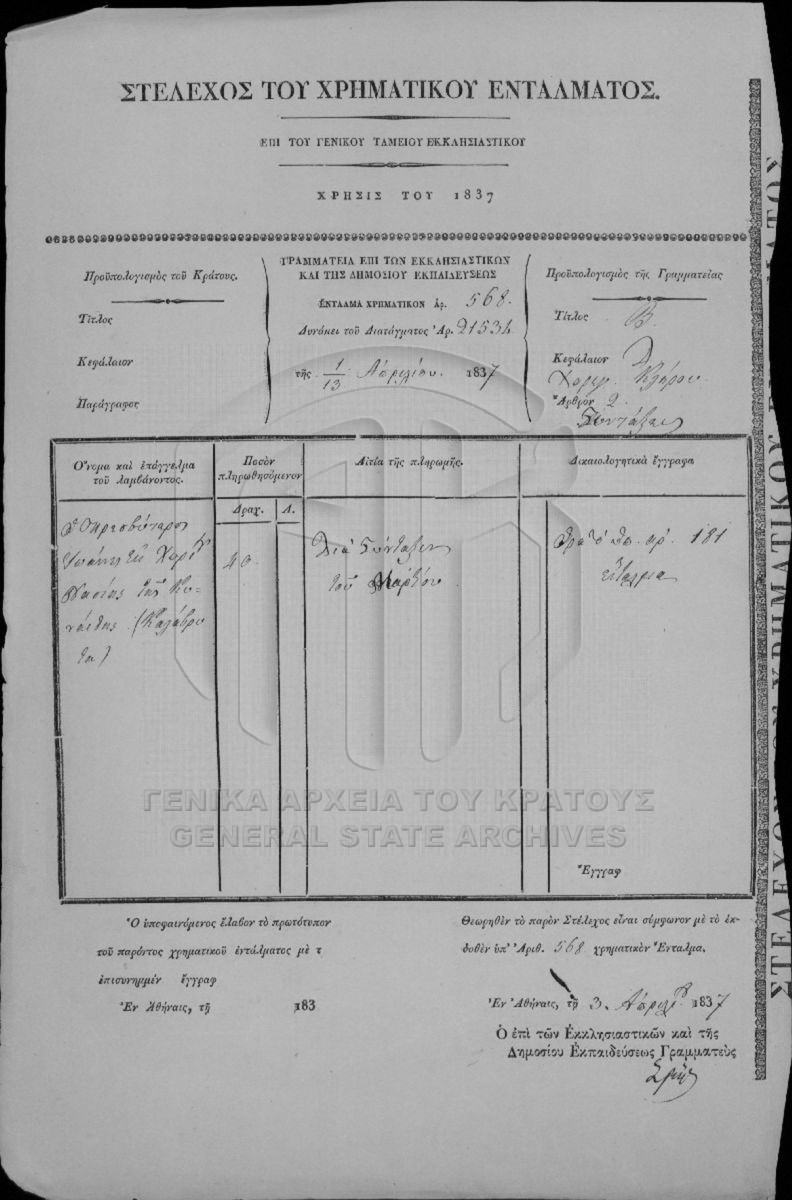 ΣΤΕΛΕΧΟΣ ΤΟΥ ΧΡΗΜΑΤΙΚΟΥ ΕΝΤΑΛΜΑΤΟΣ.
ΕΠΙ ΤΟΥ ΓΕΝΙΚΟΥ ΤΑΜΕΙΟΥ ΕΚΚΛΗΣΙΑΣΤΙΚΟΥ
ΧΡΗΣΙΣ ΤΟΥ 1837
Προϋπολογισμὸς τοῦ Κράτους.
Τίτλος
Κεφάλαιον
Παράγραφος
ΓΡΑΜΜΑΤΕΙΑ ΕΠΙ ΤΩΝ ΕΚΚΛΗΣΙΑΣΤΙΚΩΝ
ΚΑΙ ΤΗΣ ΔΗΜΟΣΙΟΥ ΕΚΠΑΙΔΕΥΣΕΩΣ
ΕΝΤΑΛΜΑ ΧΡΗΜΑΤΙΚΟΝ Ἀρ. 568.
Δυνάμει τοῦ Διατάγματος Ἀρ.
τῆς 1/13 Ἀπριλίου. 1837
Προϋπολογισμὸς τῆς Γραμματείας
Τίτλος Β.
Κεφάλαιον Δ
Κλήρου
Ἄρθρον 2.
Συντάξεις
Ὄνομα καὶ ἐπάγγελμα
τοῦ λαμβάνοντος.
Ποσὸν
πληρωθησόμενον
Δραχ. Λ.
Αἰτία τῆς πληρωμῆς.
Δικαιολογητικὰ ἔγγραφα
Ὁ πρεσβύτερος
Ἰωάννης
τῆς Κυ-
ναίθης (Καλάβρυ
τα)
40.
Διὰ Σύνταξιν
τοῦ Μαρτίου
ἀρ. 181
ἔνταλμα
Ἔγγραφ
Ὁ ὑποφαινόμενος ἔλαβον τὸ πρωτότυπον
τοῦ παρόντος χρηματικοῦ ἐντάλματος μὲ τ
ἐπισυνημμέν ἔγγραφ
Ἐν Ἀθήναις, τῇ 183
Θεωρηθὲν τὸ παρὸν Στέλεχος εἶναι σύμφωνον μὲ τὸ ἐκ-
δοθὲν ὑπ' Ἀριθ. 568 χρηματικὸν Ἔνταλμα.
Ἐν Ἀθήναις, τῇ 3. Ἀπριλίου 1837
Ὁ ἐπὶ τῶν Ἐκκλησιαστικῶν καὶ τῆς
Δημοσίου Ἐκπαιδεύσεως Γραμματεὺς
ΓΕΝΙΚΑ ΑΡΧΕΙΑ ΤΟΥ ΚΡΑΤΟΥΣ
GENERAL STATE ARCHIVES